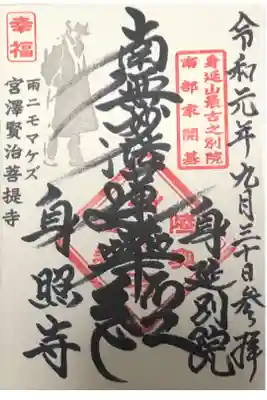 令和元年九月三十日参拝
身延山最古之別院
南部家開基
身延別院
南無妙法蓮華経
幸福
雨ニモマケズ
宮澤賢治菩提寺
身照寺